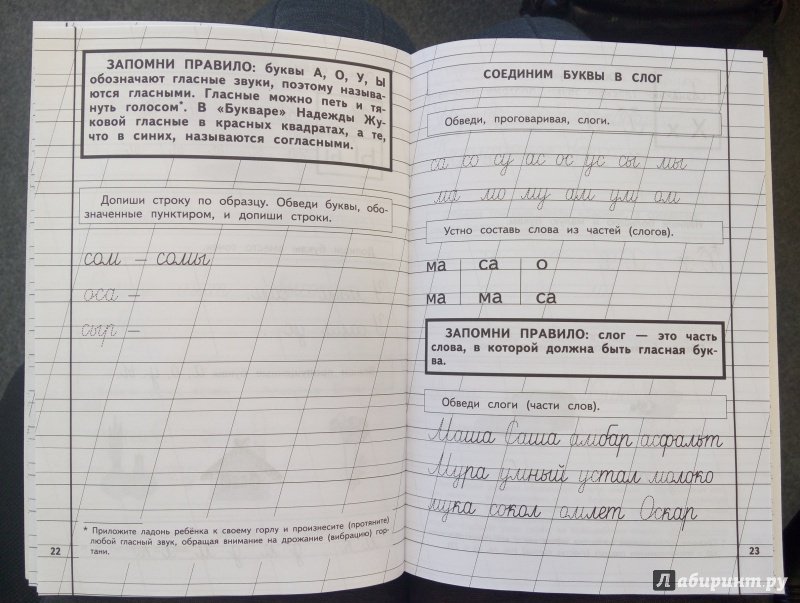 ЗАПОМНИ ПРАВИЛО: буквы А, О, У, Ы
обозначают гласные звуки, поэтому называ-
ются гласными. Гласные можно петь и тя-
нуть голосом*. В «Букваре» Надежды Жу-
ковой гласные в красных квадратах, а те,
что в синих, называются согласными.
Допиши строку по образцу. Обведи буквы, обо-
значенные пунктиром, и допиши строки.
сом – сомы
оса –
сыр –
* Приложите ладонь ребёнка к своему горлу и произнесите (протяните)
любой гласный звук, обращая внимание на дрожание (вибрацию) гор-
тани.
22
СОЕДИНИМ БУКВЫ В СЛОГ
Обведи, проговаривая, слоги.
са со су ас ос ус сы мы
ма мо му ам ум ом
Устно составь слова из частей (слогов).
ма са о
ма ма са
ЗАПОМНИ ПРАВИЛО: слог — это часть
слова, в которой должна быть гласная бук-
ва.
Обведи слоги (части слов).
Маша Саша амбар асфальт
Мура умный устал молоко
мука сокол омлет Оскар
23
Лабиринт.ру